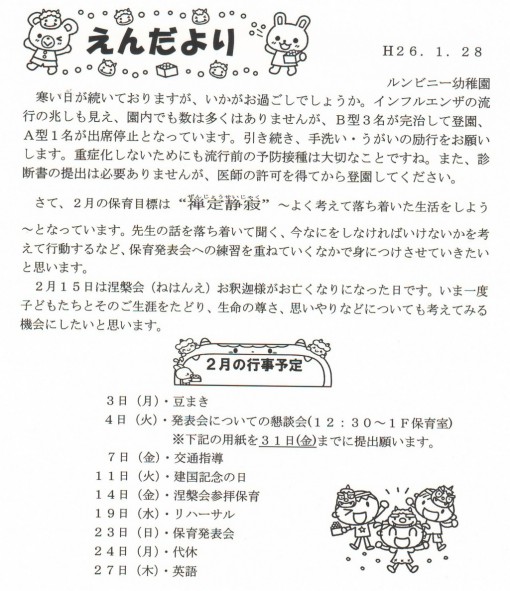 えんだより
H26.1.28
ルンビニー幼稚園
寒い日が続いておりますが、いかがお過ごしでしょうか。インフルエンザの流
行の兆しも見え、園内でも数は多くはありませんが、B型3名が完治して登園、
A型1名が出席停止となっています。引き続き、手洗い・うがいの励行をお願い
します。重症化しないためにも流行前の予防接種は大切なことですね。また、診
断書の提出は必要ありませんが、医師の許可を得てから登園してください。
ぜんじょうせいじゃく
さて、2月の保育目標は“禅定静寂”~よく考えて落ち着いた生活をしよう
~となっています。先生の話を落ち着いて聞く、今なにをしなければいけないかを考
えて行動するなど、保育発表会への練習を重ねていくなかで身につけさせていきたい
と思います。
2月15日は涅槃会(ねはんえ)お釈迦様がお亡くなりになった日です。いま一度
子どもたちとそのご生涯をたどり、生命の尊さ、思いやりなどについても考えてみる
機会にしたいと思います。
2月の行事予定
3日(月)・豆まき
4日(火)・発表会についての懇談会(12:30~1F保育室)
※下記の用紙を31日(金)までに提出願います。
7日(金)・交通指導
11日(火)・建国記念の日
14日(金)・涅槃会参拝保育
19日(水)・リハーサル
23日(日)・保育発表会
24日(月)・代休
27日(木)・英語